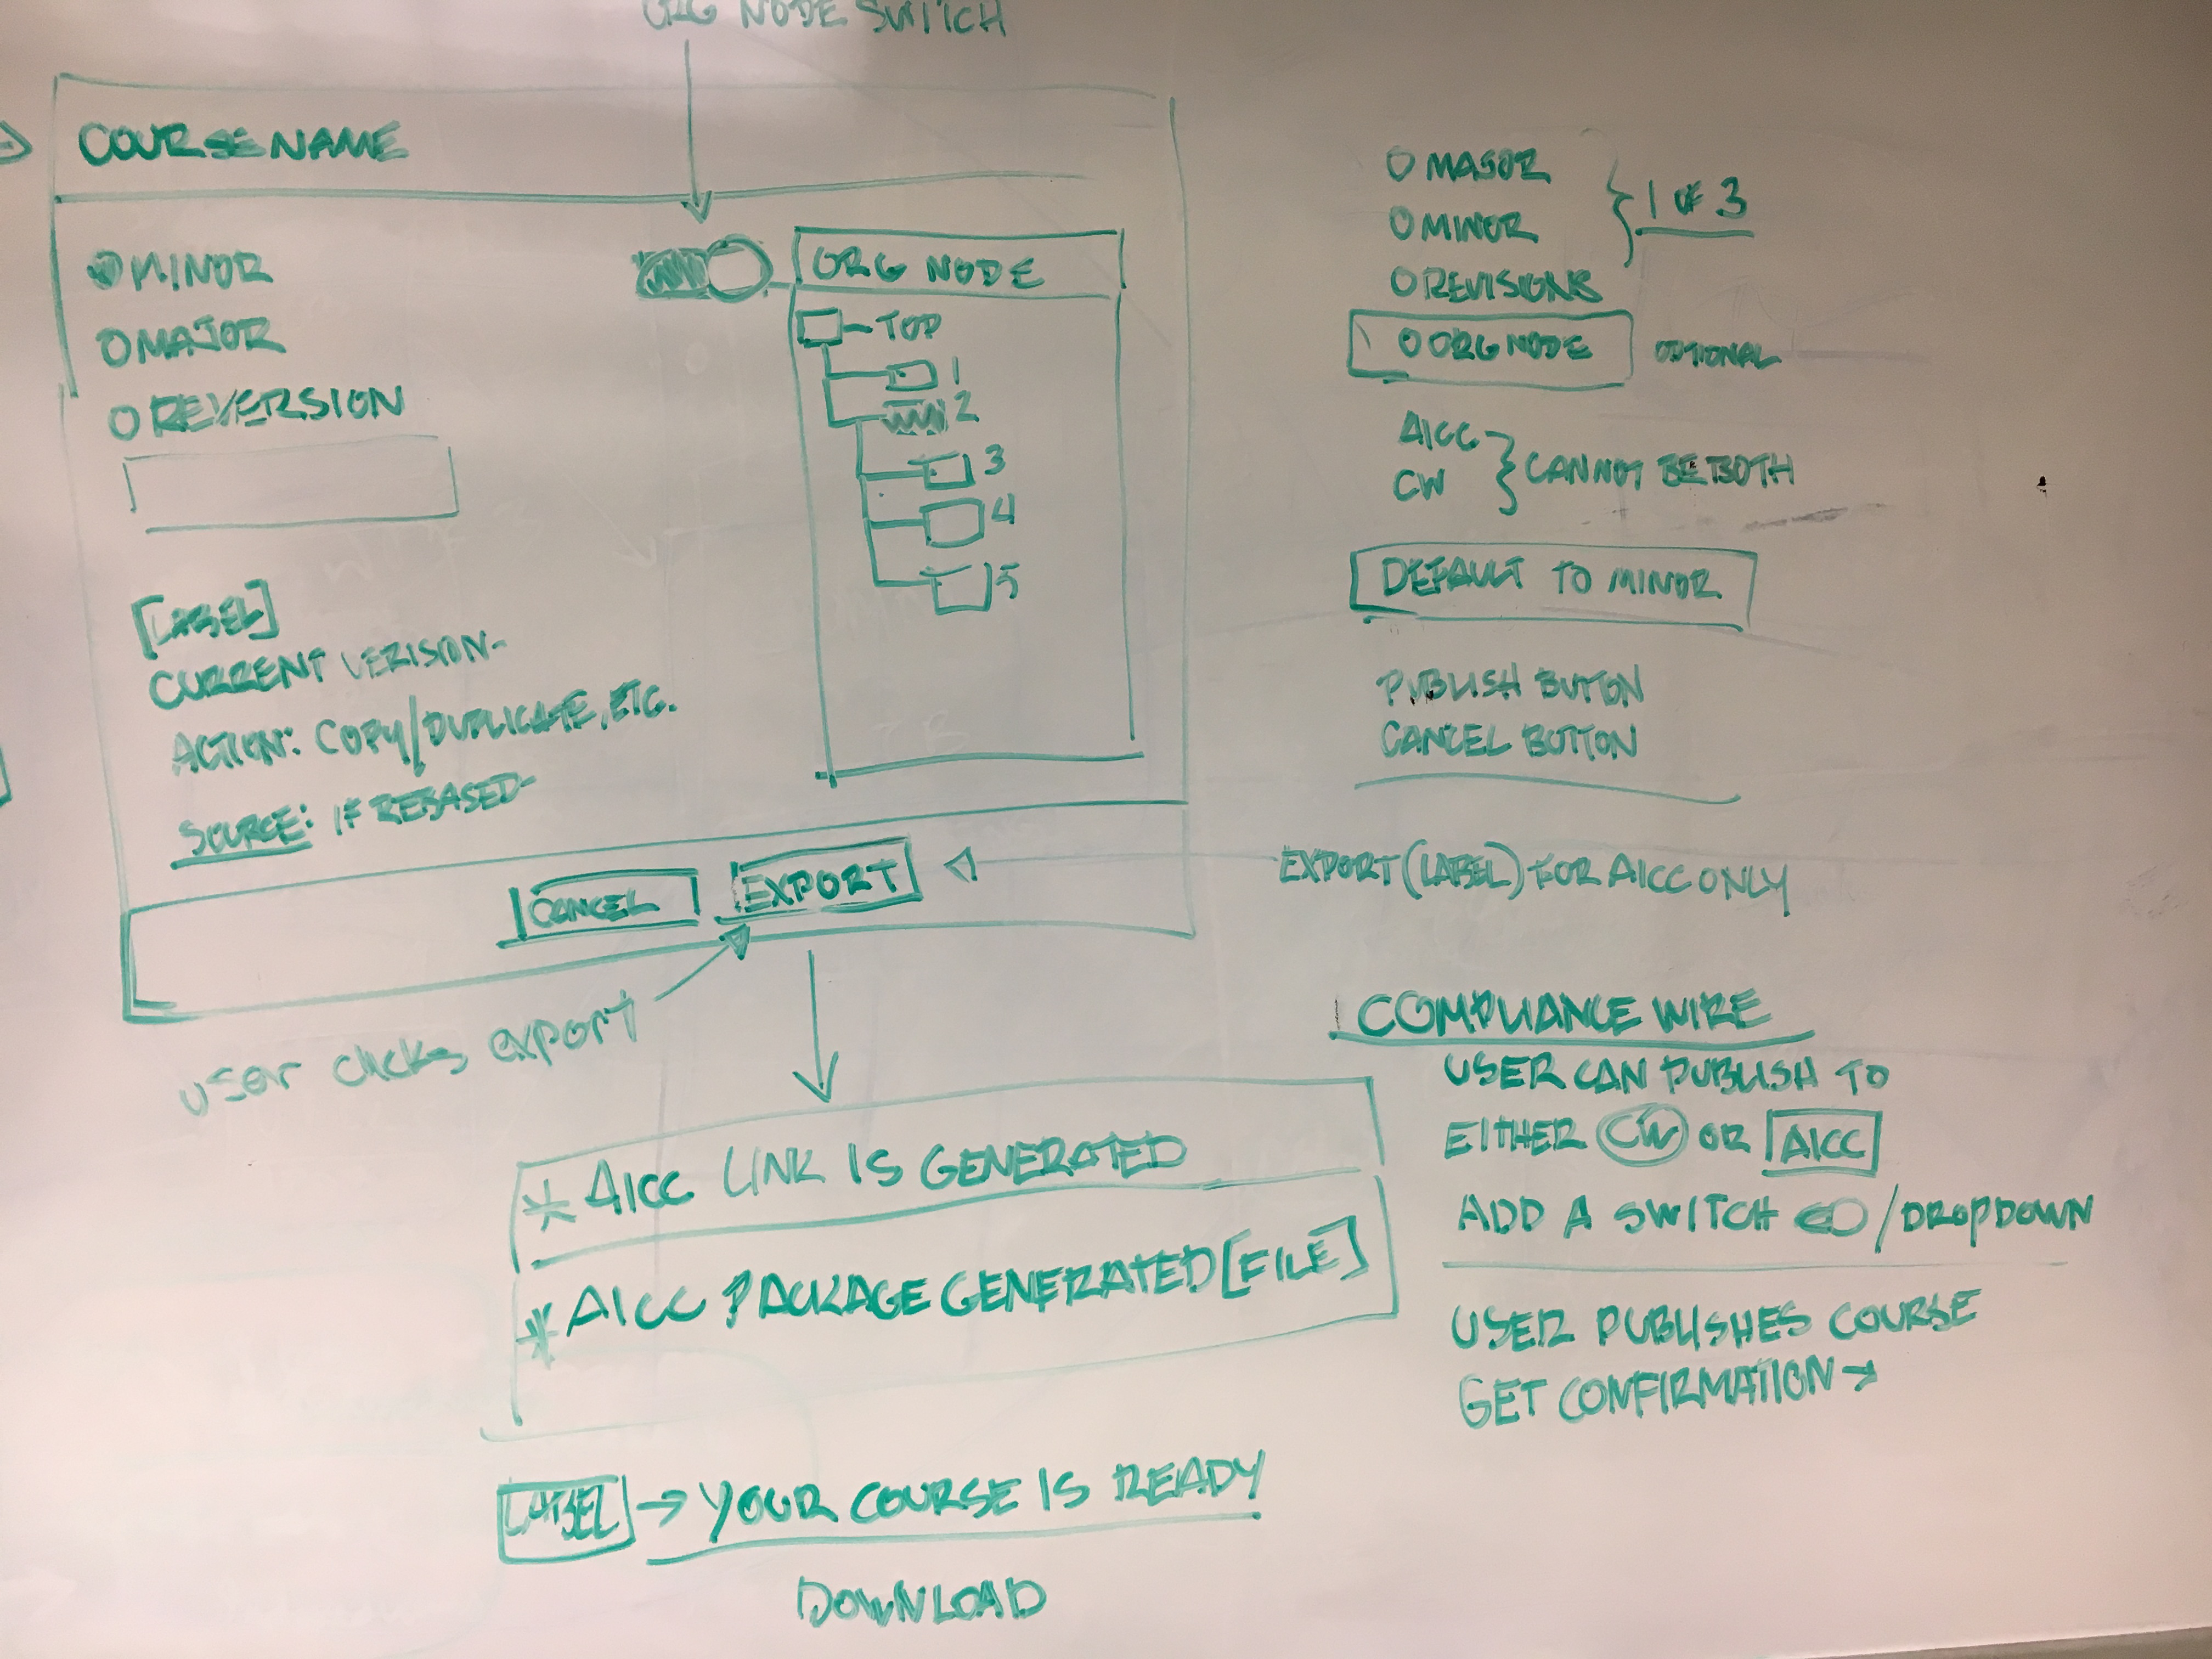 ORG NODE SWITCH
COURSE NAME
MINOR
MAJOR
REVERSION
[LABEL]
CURRENT VERISION-
ACTION: COPY/DUPLICATE, ETC.
SOURCE: IF REBASED-
ORG NODE
TOP
1
2
3
4
5
CANCEL
EXPORT
USER CLICKS EXPORT
* AICC LINK IS GENERATED
* AICC PACKAGE GENERATED [FILE]
LABEL → YOUR COURSE IS READY
DOWNLOAD
MAJOR
MINOR
REVISIONS
1 OF 3
ORG NODE OPTIONAL
AICC
CW
CANNOT BE BOTH
DEFAULT TO MINOR
PUBLISH BUTTON
CANCEL BUTTON
EXPORT (LABEL) FOR AICC ONLY
COMPLIANCE WIRE
USER CAN PUBLISH TO
EITHER CW OR AICC
ADD A SWITCH /DROPDOWN
USER PUBLISHES COURSE
GET CONFIRMATION →